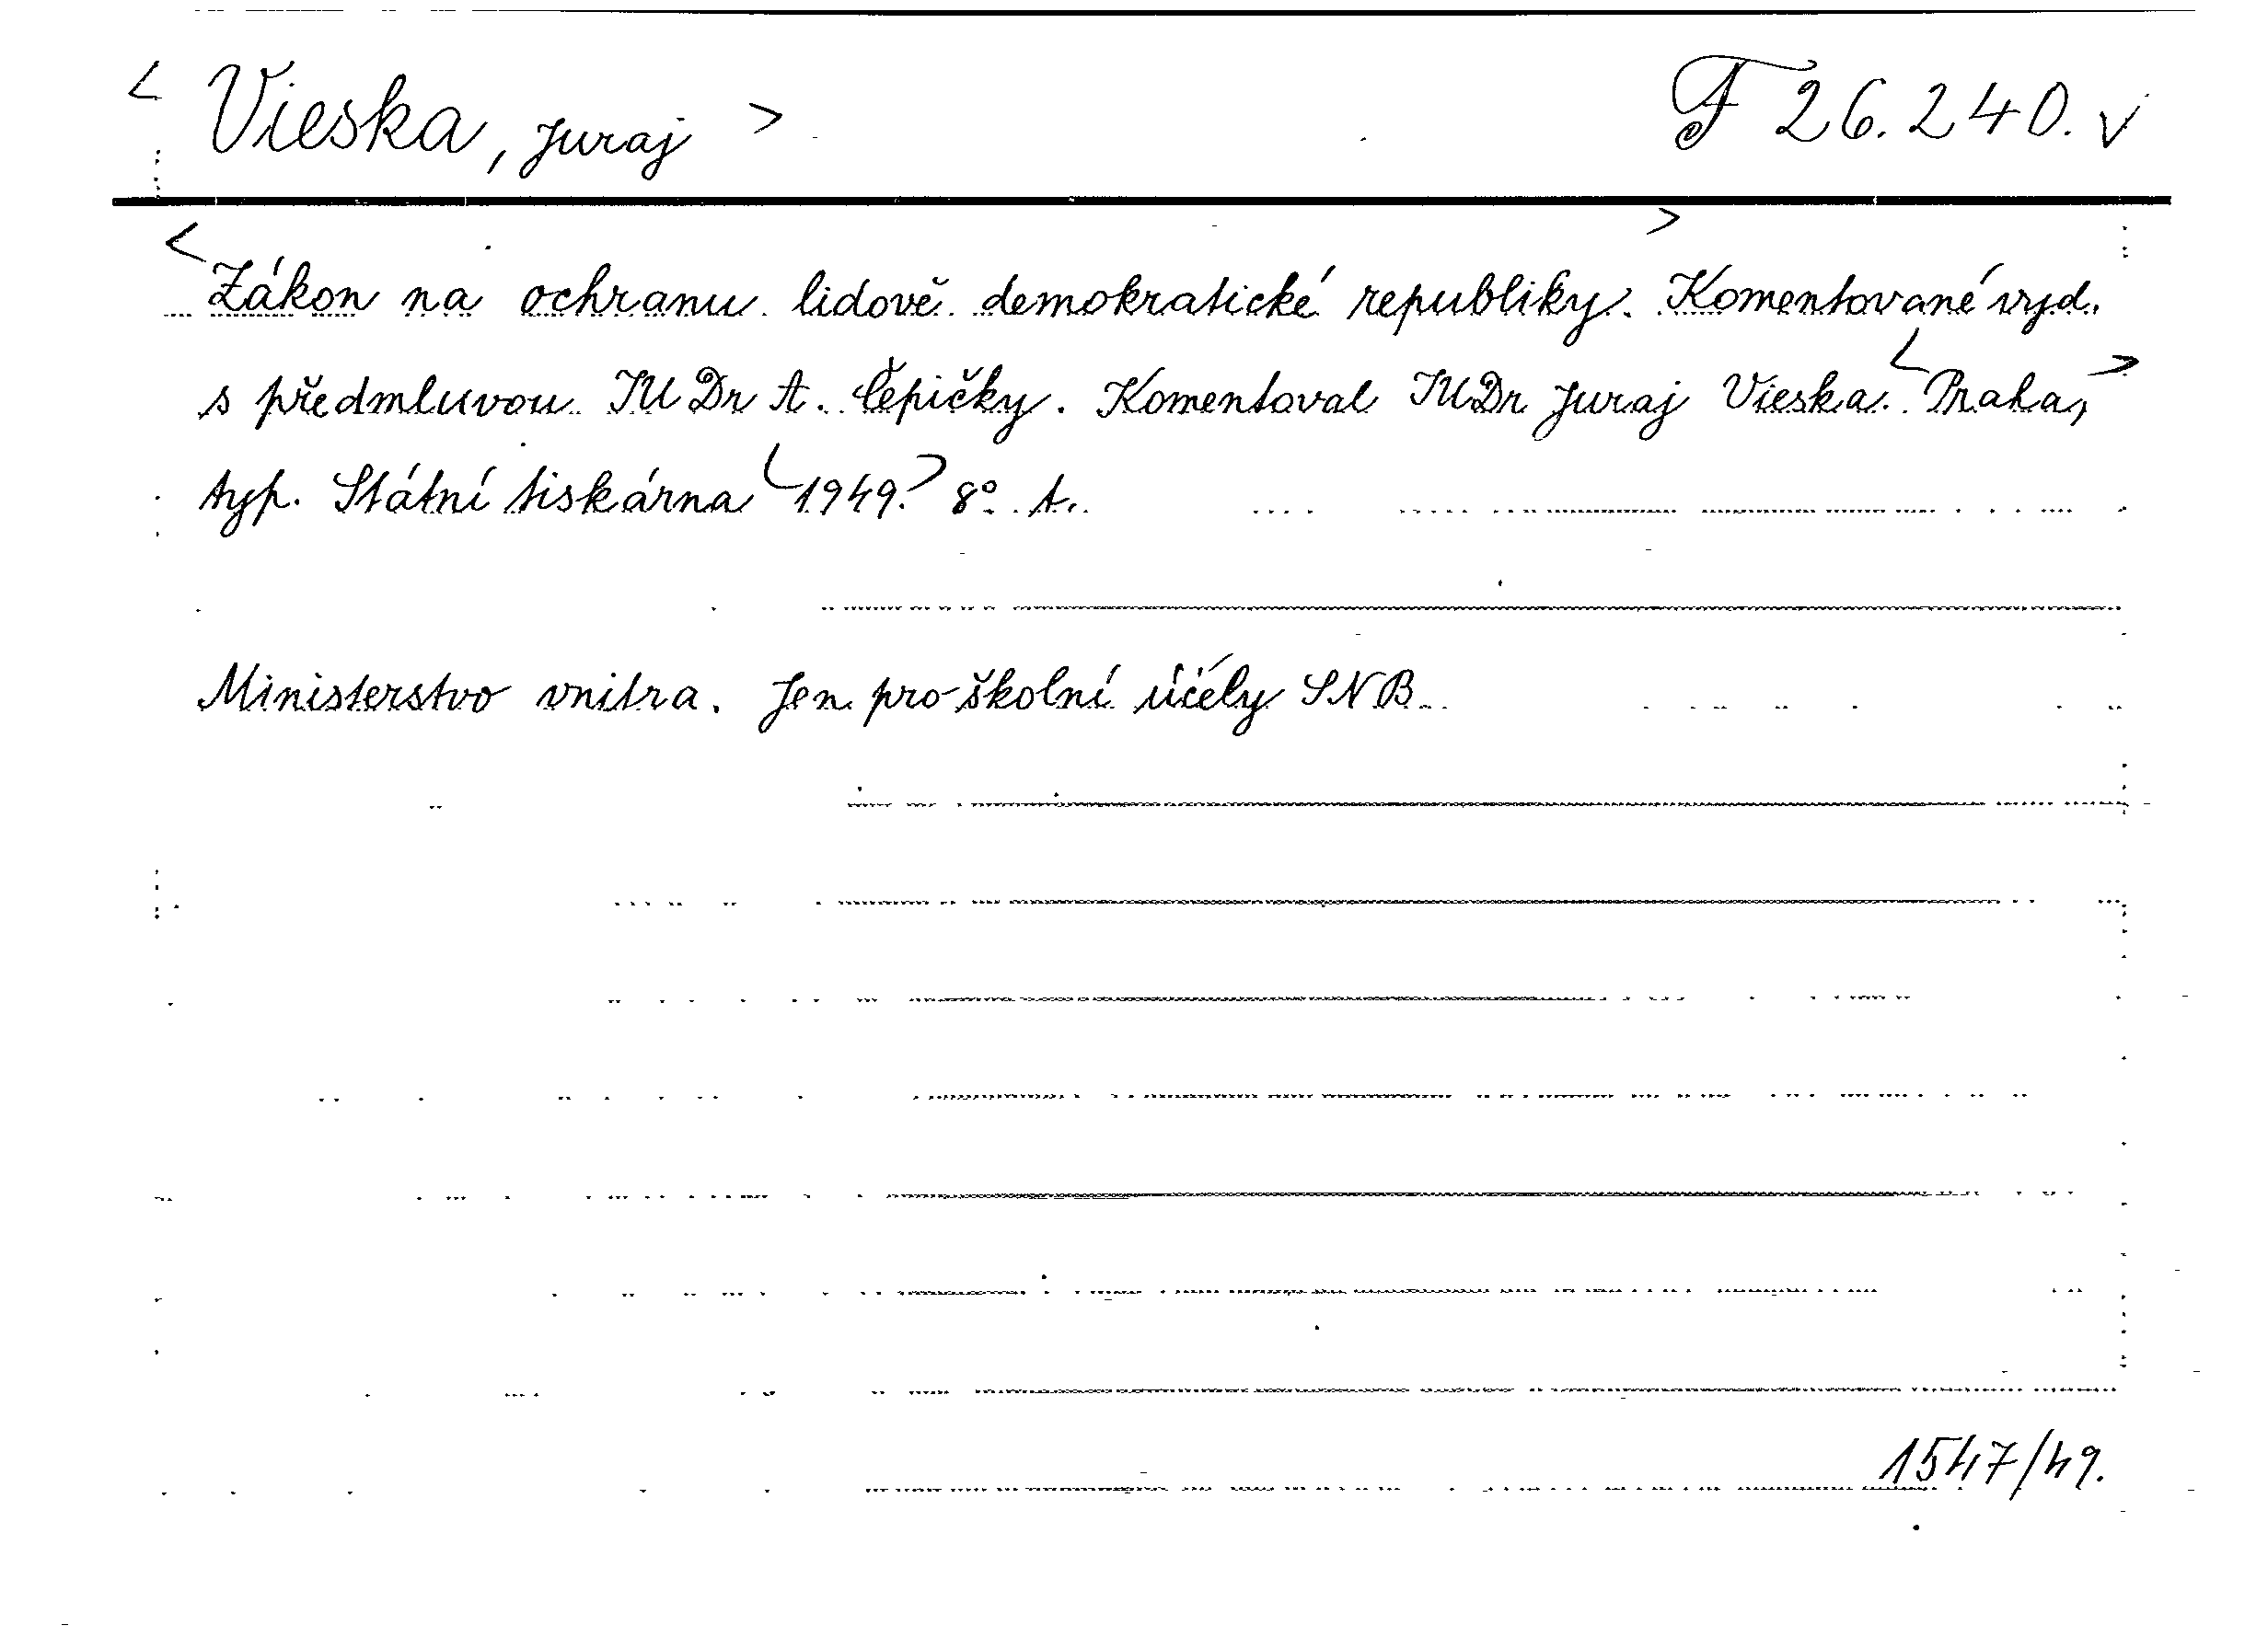 < Vieska, Juraj > F 26.240. v
<Zákon na ochranu lidově demokratické republiky.> Komentované vyd.
s předmluvou JUDr A. Čepičky. Komentoval JUDr Juraj Vieska. <Praha,>
typ. Státní tiskárna <1949.> 8°. t.
Ministerstvo vnitra. Jen pro školní účely SNB
1547/49.